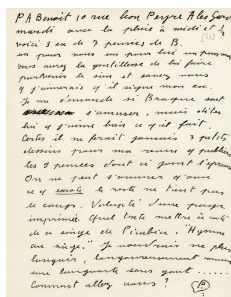 PA Benoit 10 rue Léon Peyre Alès Gard
mardi avec la pluie à midi et 1/2
voici 3 ex de 7 pensées de B.
un pour vous un pour lui un pour
vous auriez la gentillesse de lui faire
parvenir le sien et savez vous
q j'aimerais q'il signe mon ex.
Je me demande si Braque sait
s'amuser, mais stiles
lui q j'aime bien ce q'il fait
Certes il ne ferait jamais 3 petits
dessins pour ma revue q publiera
les 7 pensées dont ci joint
On ne peut s'amuser q'avec
ce q coute le reste ne tient pas
le coup. Volupté d'une page
imprimée. Quel texte mettre à coté
de ce singe de Picabia, "Hymne
au singe." Je voudrais ne plus
languir, langoureusement comme
une langouste sans gout ......
Comment allez vous?